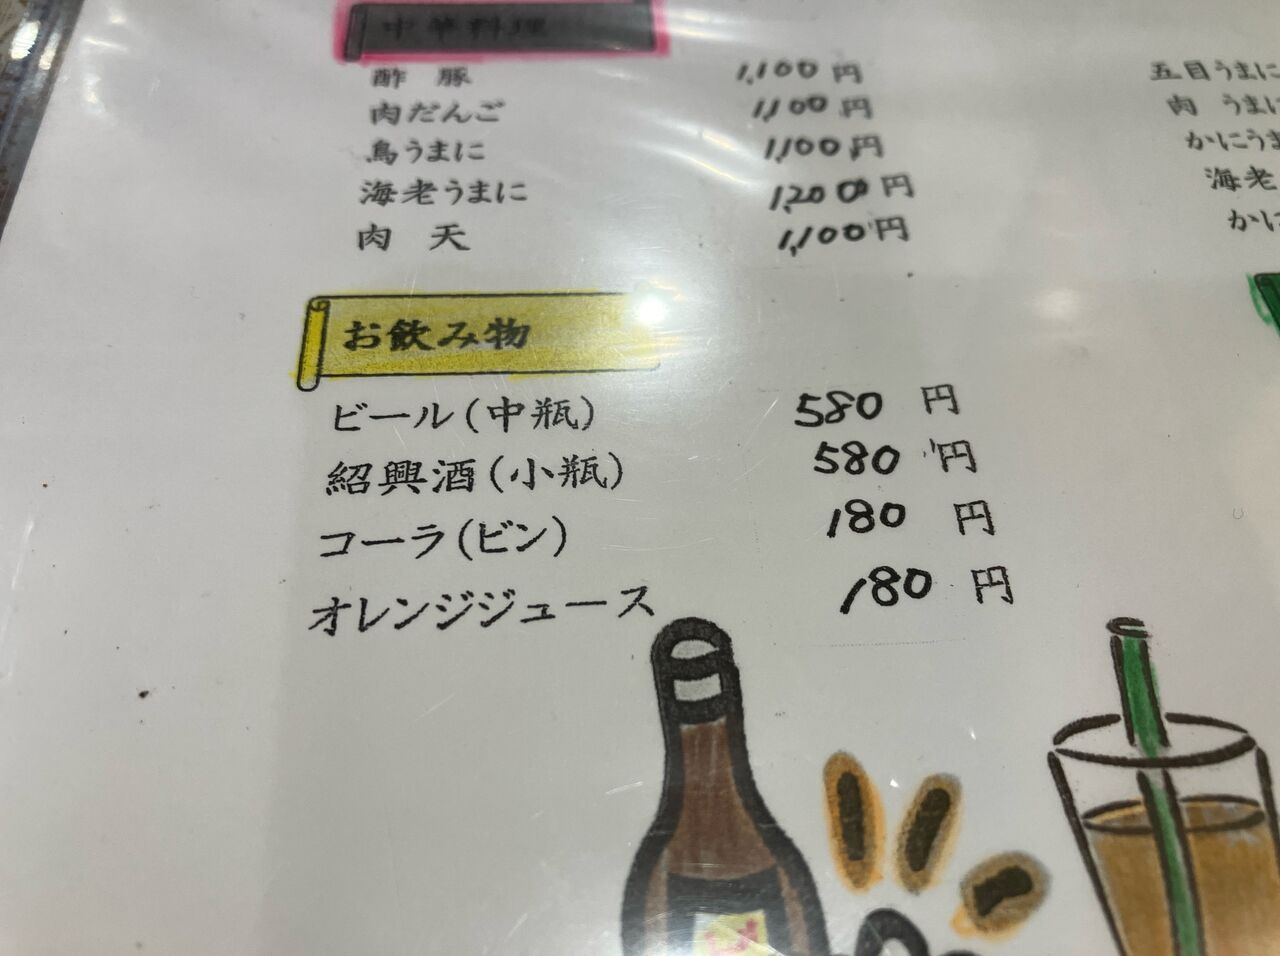 中華料理
酢 豚 1,100円
肉だんご 1,100円
鳥うまに 1,100円
海老うまに 1,200円
肉 天 1,100円
五目うまに
肉 うまに
かにうま
海老
かに
お飲み物
ビール(中瓶) 580円
紹興酒(小瓶) 580円
コーラ(ビン) 180円
オレンジジュース 180円